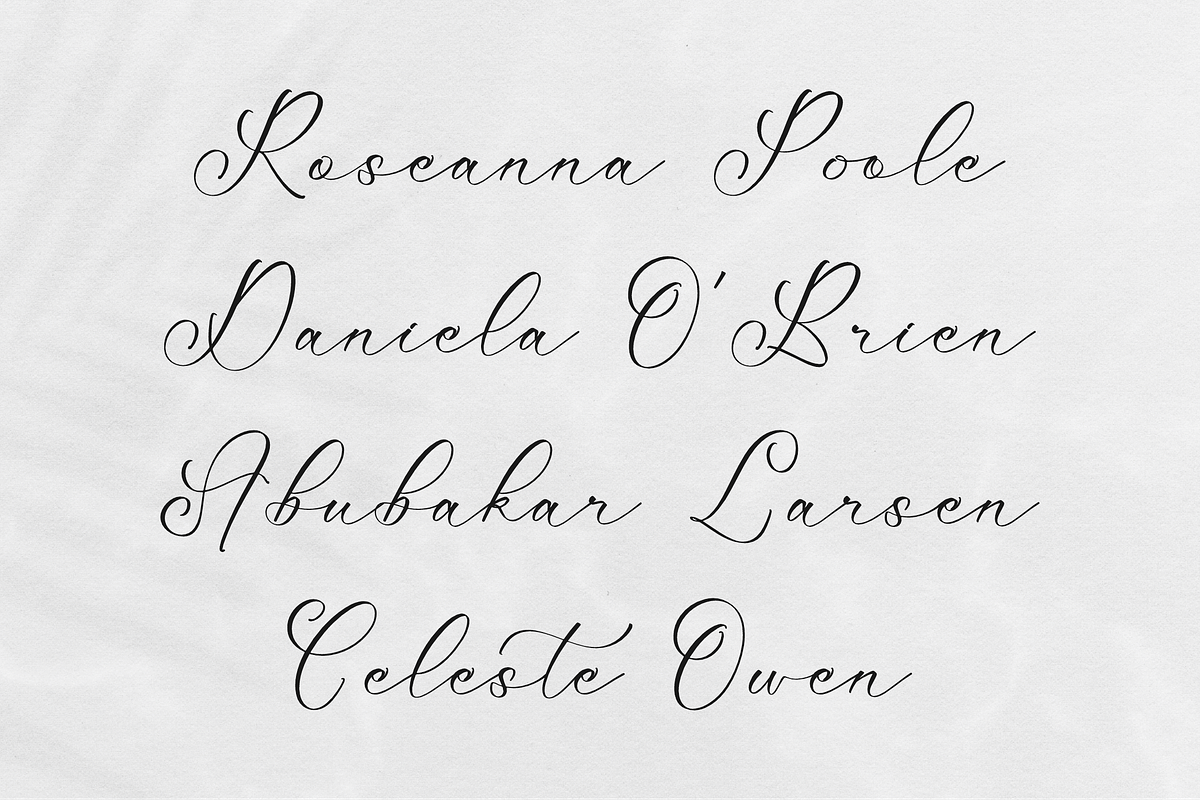 Roseanna Poole
Daniela O'Brien
Abubakar Larsen
Celeste Owen